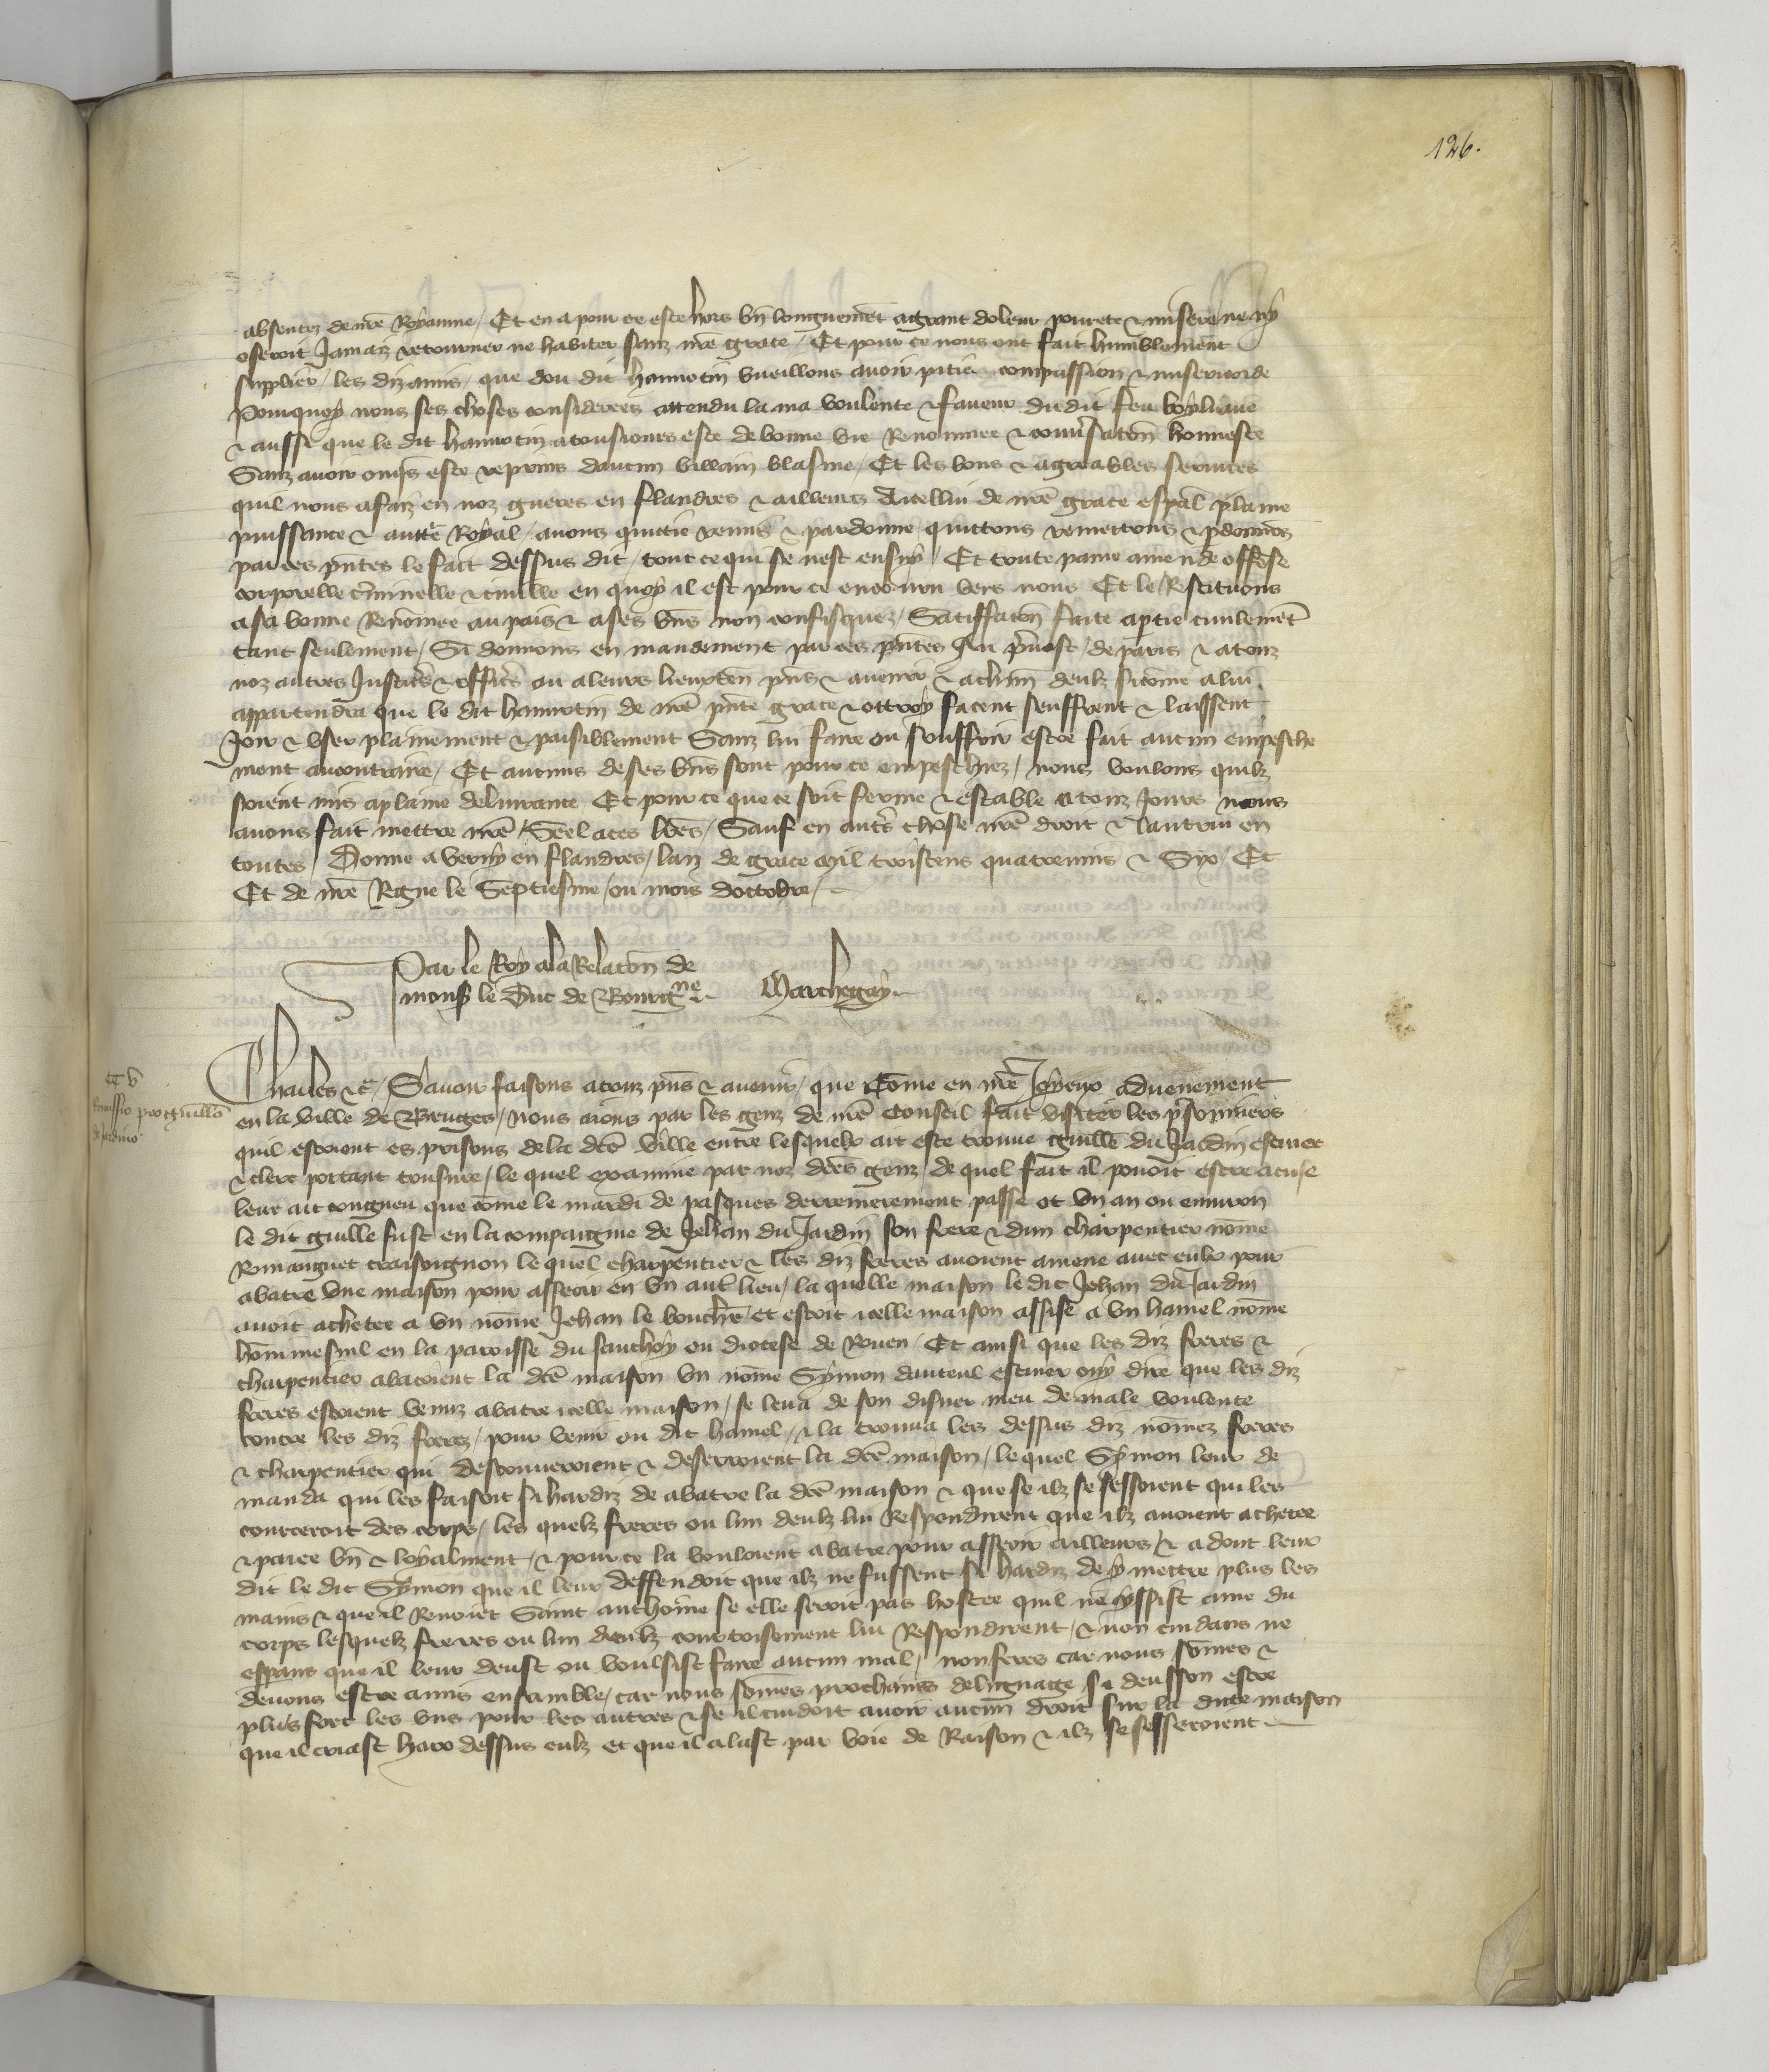 126.
absentez de nre Royaume / Et en a pour ce este hors bn longuement a grant doleur pourete & misere ne ny
oseroit Jamaiz retourner ne habiter sanz nre grace / Et pour ce nous ont fait humblement
supplier / les diz amis / que dou dit hannotin vueillons auoir pitie compassion & misericorde
Pourquoy nous ses choses considerees attendu la ma voulente & faueur du dit feu
& aussi que le dit hannotin a tousiours este de bonne vie Renommee & conuersaton honneste
Sanz auoir onqs este reprins daucun villain blasme / Et les bons & agreables seruices
quil nous a faiz en noz guerres en flandres & ailleurs A icellui de nre grace espal plaine
puissance & autte Royal / auons quictie remis & pardonne quittons remettons & pdonnos
par ces pntes le fait dessus dit / tout ce qui se nest ensuy / Et toute paine amende offese
corporelle criminelle & ciuille en quoy il est pour ce encouru vers nous Et le Restituons
a sa bonne Renomee au pais & a ses bns non confisquez / Satiffacon faite a ptie ciuilemet
tant seulement / Si donnons en mandement par ces pntes Au puost de paris & a touz
noz autres Justiciers & officiers ou a leurs lieuxten pns & auenir & a chun deulz si come a lui
appartendra que le dit hannotin de nre pnte grace & ottroy facent seuffrent & laissent
Joir & vser plainement & paisiblement Sanz lui faire ou souffrir estre fait aucun empesche
ment au contraire / Et aucuns de ses bns sont pour ce empeschiez / nous voulons quilz
soient mis a plaine deliurance Et pour ce que ce soit ferme & estable a touz Jours nous
auons fait mettre nre Seel a ces lres / Sauf en autre chose nre droit & lautrui en
toutes / Donne a en flandres / lan de grace mil troiscens quatreuins & Six / Et
Et de nre Regne le Septiesme / ou mois doctobre /
Par le Roy a la Relacon de
mons le Duc de Bourgne Marchegay
CC v
Remissio pro guillo
de Jardino
Charles &c / Sauoir faisons a touz pns & auenir / que Come en nre Joyeux aduenement
en la ville de Bruges / nous aions par les genz de nre Conseil fait visiter les prisonniers
quil estoient es prisons de la dce ville entre lesquelx ait este trouue guille du Jardin escuier
& clerc portant tonsure / le quel examine par noz dces genz de quel fait il pouoit estre acuse
leur ait congneu que come le mardi de pasques derrenierement passe ot vn an ou enuiron
le dit guille fust en la compaignie de Jehan du Jardin son frere & dun charpentier nome
Romanguet le quel charpentier & les diz freres auoient amene auec eulx pour
abatre vne maison pour asseoir en vn aut lieu / la quelle maison le dit Jehan du Jardin
auoit achetee a vn nome Jehan le bouchre / et estoit icelle maison assise a vn hamel nome
hommesnil en la paroisse du sauchoy ou diocese de Rouen / Et ainsi que les diz freres &
charpentier abatoient la dce maison vn nome Symon dauteul escuier oy dire que les diz
freres estoient venuz abatre icelle maison / se leua de son disner meu de male voulente
contre les diz freres / pour venir ou dit hamel / & la trouua les dessus diz nomez freres
& charpentier qui descouuroient & deserroient la dce maison / le quel Symon leur de
manda qui les faisoit si hardiz de abatre la dce maison & que se ilz se sessoient qui les
courceroit des corps / les quelz freres ou lun deulz lui Respondirent que ilz auoient achetee
& paiee bn & loyalment / & pour ce la vouloient abatre pour asseoir ailleurs / & adont leur
dit le dit Symon que il leur deffendoit que ilz ne fussent si hardiz de y mettre plus les
mains & que il Renoiet Saint anthoine se elle seroit pas hostee quil ne yssist ame du
corps lesquelz freres ou lun deulz courtoisement lui Respondirent / & non cuidans ne
espans que il leur deust ou voulsist faire aucun mal / non feres car nous somes &
deuons estre amis ensamble / car nous somes prochains de lignage si deusson estre
plus fort les vns pour les autres & se il cuidoit auoir aucun droit sur la dicte maison
que il criast haro dessus eulz et que il alast par voie de Raison & ilz se sesseroient